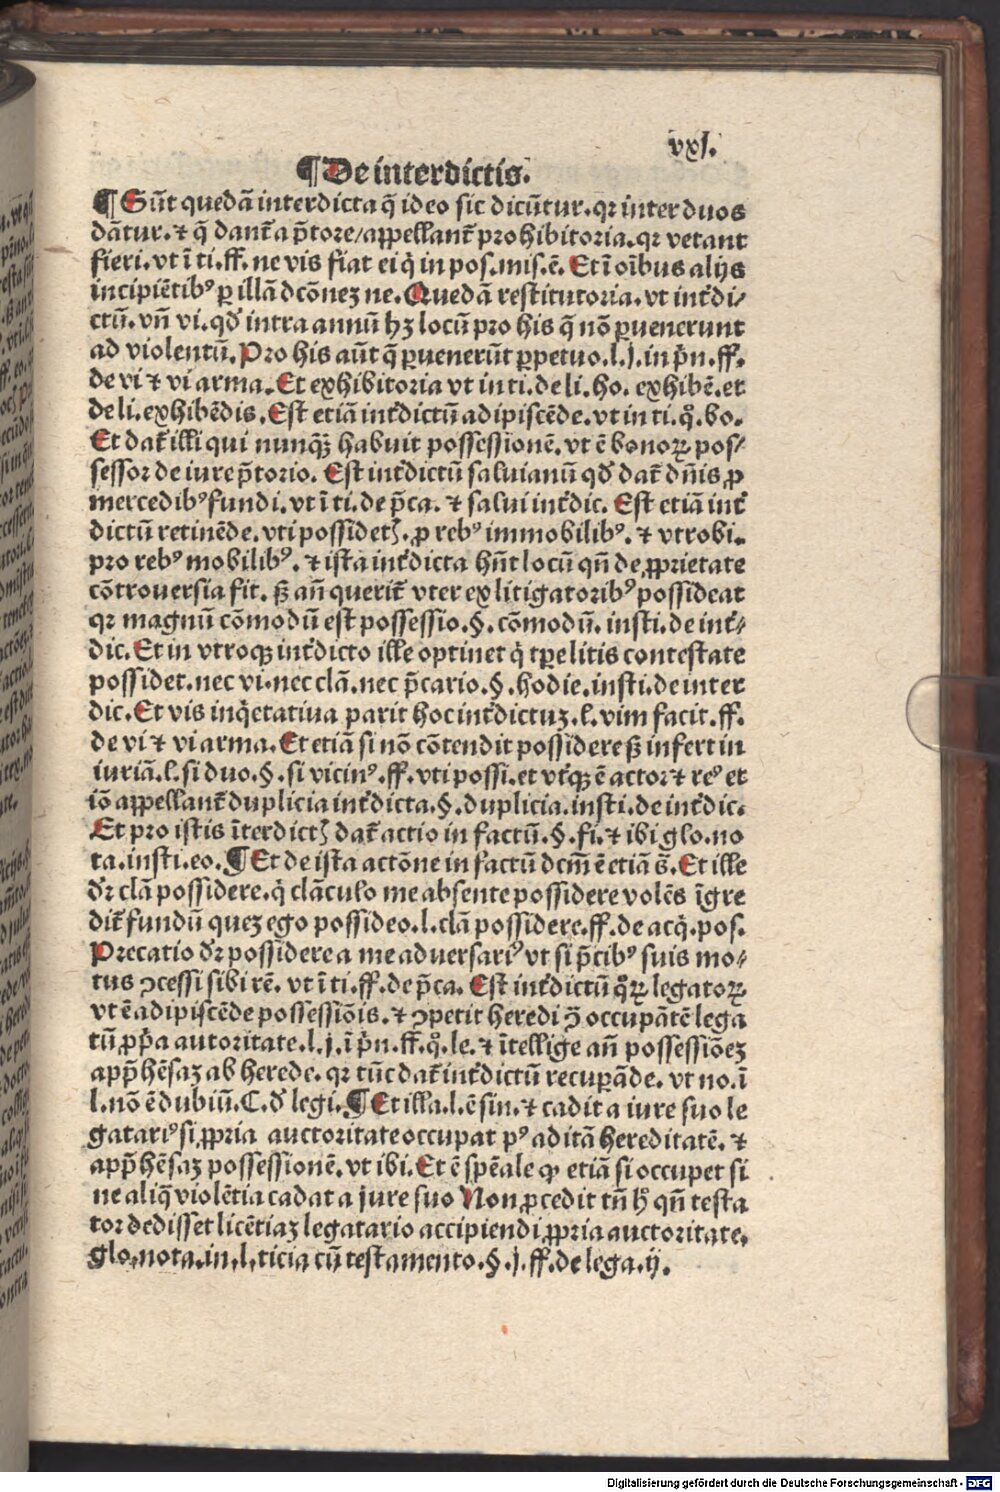 vxj.
¶ De interdictis.
¶ Sūt quedā interdicta q̄ ideo sic dicūtur. qꝛ inter duos
dātur. ⁊ q̄ dant̄ a p̄tore/appellant̄ prohibitoria. qꝛ vetant
fieri. vt ī ti. ff. ne vis fiat ei q̇ in pos. mis. ē. Et ī oībus alijs
incipiētibꝰ ꝑ illā dcōnez ne. Quedā restitutoria. vt int̄di/
ctū. vn̄ vi. qd̓ intra annū hꝫ locū pro his q̄ nō ꝑuenerunt
ad violentū. Pro his aūt q̄ ꝑuenerūt ꝑpetuo. l. j. in pn̄. ff.
de vi ⁊ vi arma. Et exhibitoria vt in ti. de li. ho. exhibē. et
de li. exhibēdis. Est etiā int̄dictū adipiscēde. vt in ti. qͦ. bo.
Et dat̄ illi qui nunqͣ habuit possessionē. vt ē bonoꝝ pos/
sessor de iure p̄torio. Est int̄dictū saluianū qd̓ dat̄ dn̄is ꝓ
mercedibꝰ fundi. vt ī ti. de p̄ca. ⁊ salui int̄dic. Est etiā int̄
dictū retinēde. vti possidetꝭ. ꝓ rebꝰ immobilibꝰ. ⁊ vtrobi.
pro rebꝰ mobilibꝰ. ⁊ ista int̄dicta hn̄t locū qn̄ de ꝓprietate
cōtrouersia fit. ꝫ an̄ querit̄ vter ex litigatoribꝰ possideat
qꝛ magnū cōmodū est possessio. §. cōmodū. insti. de int̄/
dic. Et in vtroqꝫ int̄dicto ille optinet q̇ tꝑe litis contestate
possidet. nec vi. nec clā. nec p̄cario. §. hodie. insti. de inter
dic. Et vis inq̇etatiua parit hoc int̄dictuz. l. vim facit. ff.
de vi ⁊ vi arma. Et etiā si nō cōtendit possidere ꝫ infert in
iuriā. l. si duo. §. si vicinꝰ. ff. vti possi. et vt̓qꝫ ē actor ⁊ reꝰ et
iō appellant̄ duplicia int̄dicta. §. duplicia. insti. de int̄dic.
Et pro istis īterdictꝭ dat̄ actio in factū. §. fi. ⁊ ibi glo. no
ta. insti. eo. ¶ Et de ista actōne in factū dcm̄ ē etiā s̄. Et ille
dr̄ clā possidere. q̇ clāculo me absente possidere volēs īgre
dit̄ fundū quez ego possideo. l. clā possidere. ff. de acq̇. pos.
Precatio dr̄ possidere a me aduersariꝰ vt si p̄cibꝰ suis mo/
tus ꝯcessi sibi rē. vt ī ti. ff. de p̄ca. Est int̄dictū qͦꝝ legatoꝝ
vt ē adipiscēde possessiōis. ⁊ ꝯpetit heredi ꝯ̄ occupātē lega
tū ꝓp̄a autoritate. l. j. ī pn̄. ff. qͦ. le. ⁊ ītellige an̄ possessiōez
app̄hēsaz ab herede. qꝛ tūc dat̄ int̄dictū recuꝑāde. vt no. ī
l. nō ē dubiū. C. d̓ legi. ¶ Et illa. l. ē sin. ⁊ cadit a iure suo le
gatariꝰ si ꝓpria auctoritate occupat pꝰ aditā hereditatē. ⁊
app̄hēsaz possessionē. vt ibi. Et ē spēale ꝙ etiā si occupet si
ne aliq̄ violētia cadat a jure suo Non ꝓcedit tn̄ h̓ qn̄ testa
tor dedisset licētiaz legatario accipiendi ꝓpria auctoritate.
glo. nota. in. l. ticia cū testamento. §. j. ff. de lega. ij.
Digitalisierung gefördert durch die Deutsche Forschungsgemeinschaft - DFG